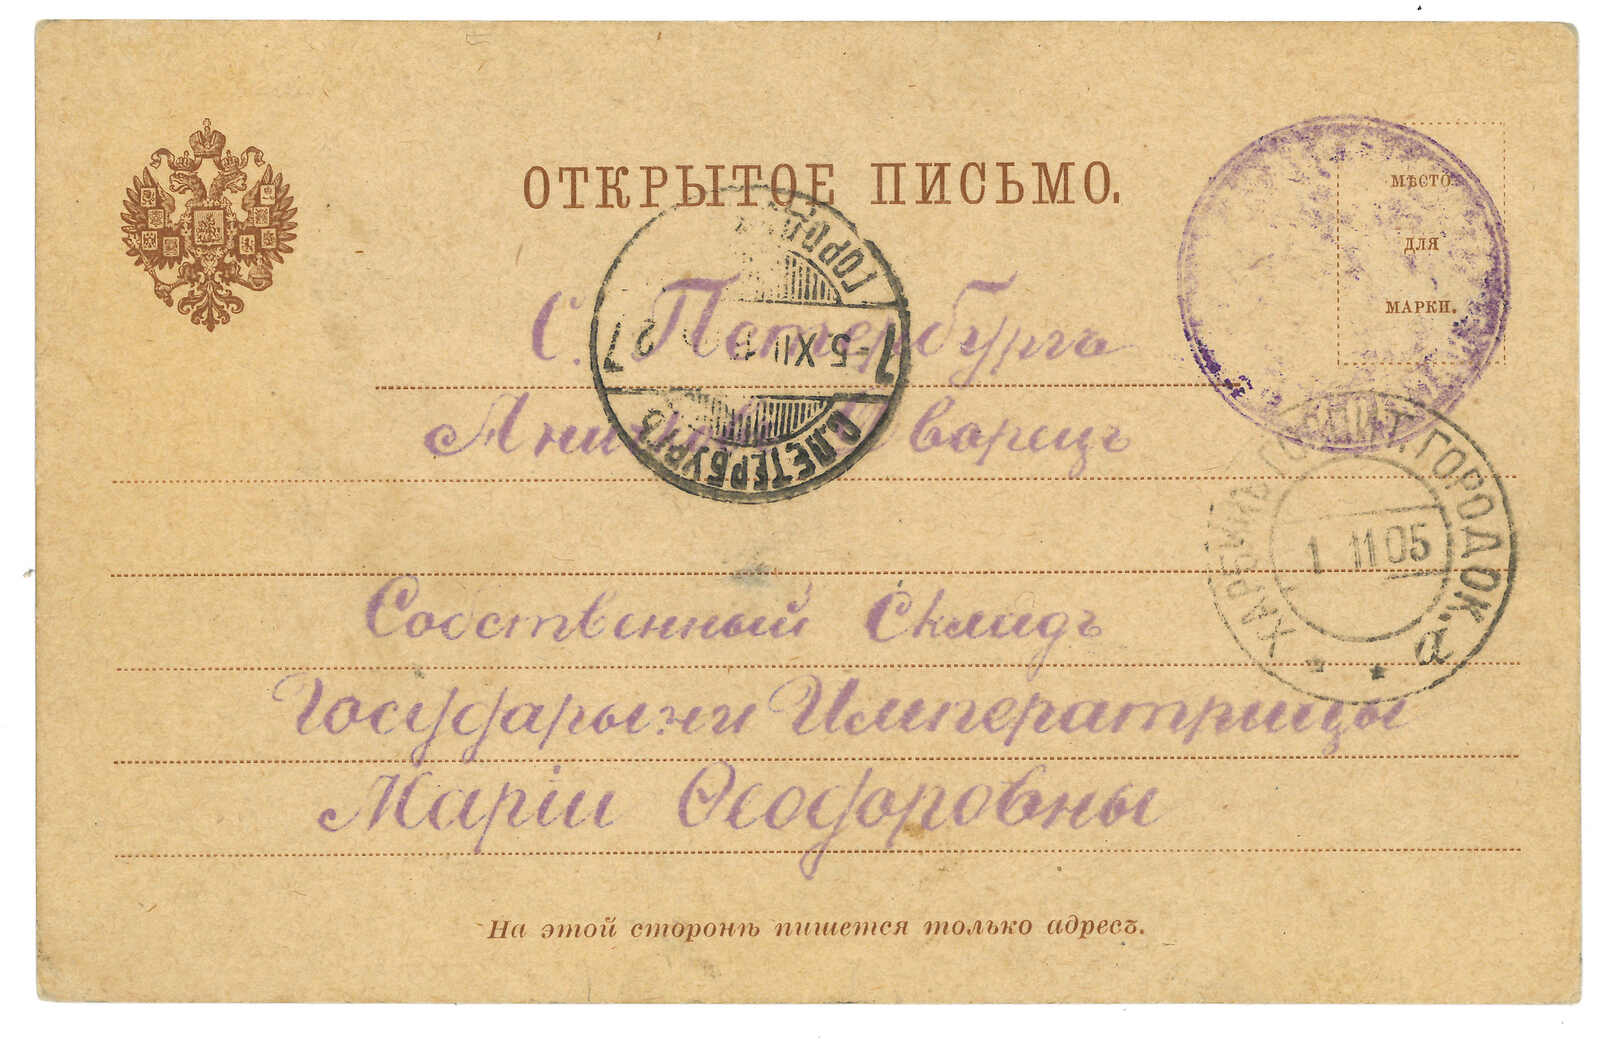 ОТКРЫТОЕ ПИСЬМО.
МѢСТО
ДЛЯ
МАРКИ.
С. Петербургъ
Аничковъ Дворецъ
Собственный Складъ
Государыни Императрицы
Маріи Ѳеодоровны
На этой сторонѣ пишется только адресъ.
ГОРОД
7-5 XII
27
С.ПЕТЕРБУРГЪ
ХАРБИНЪ ГОСПИТ. ГОРОДОК.
1 11 05
а